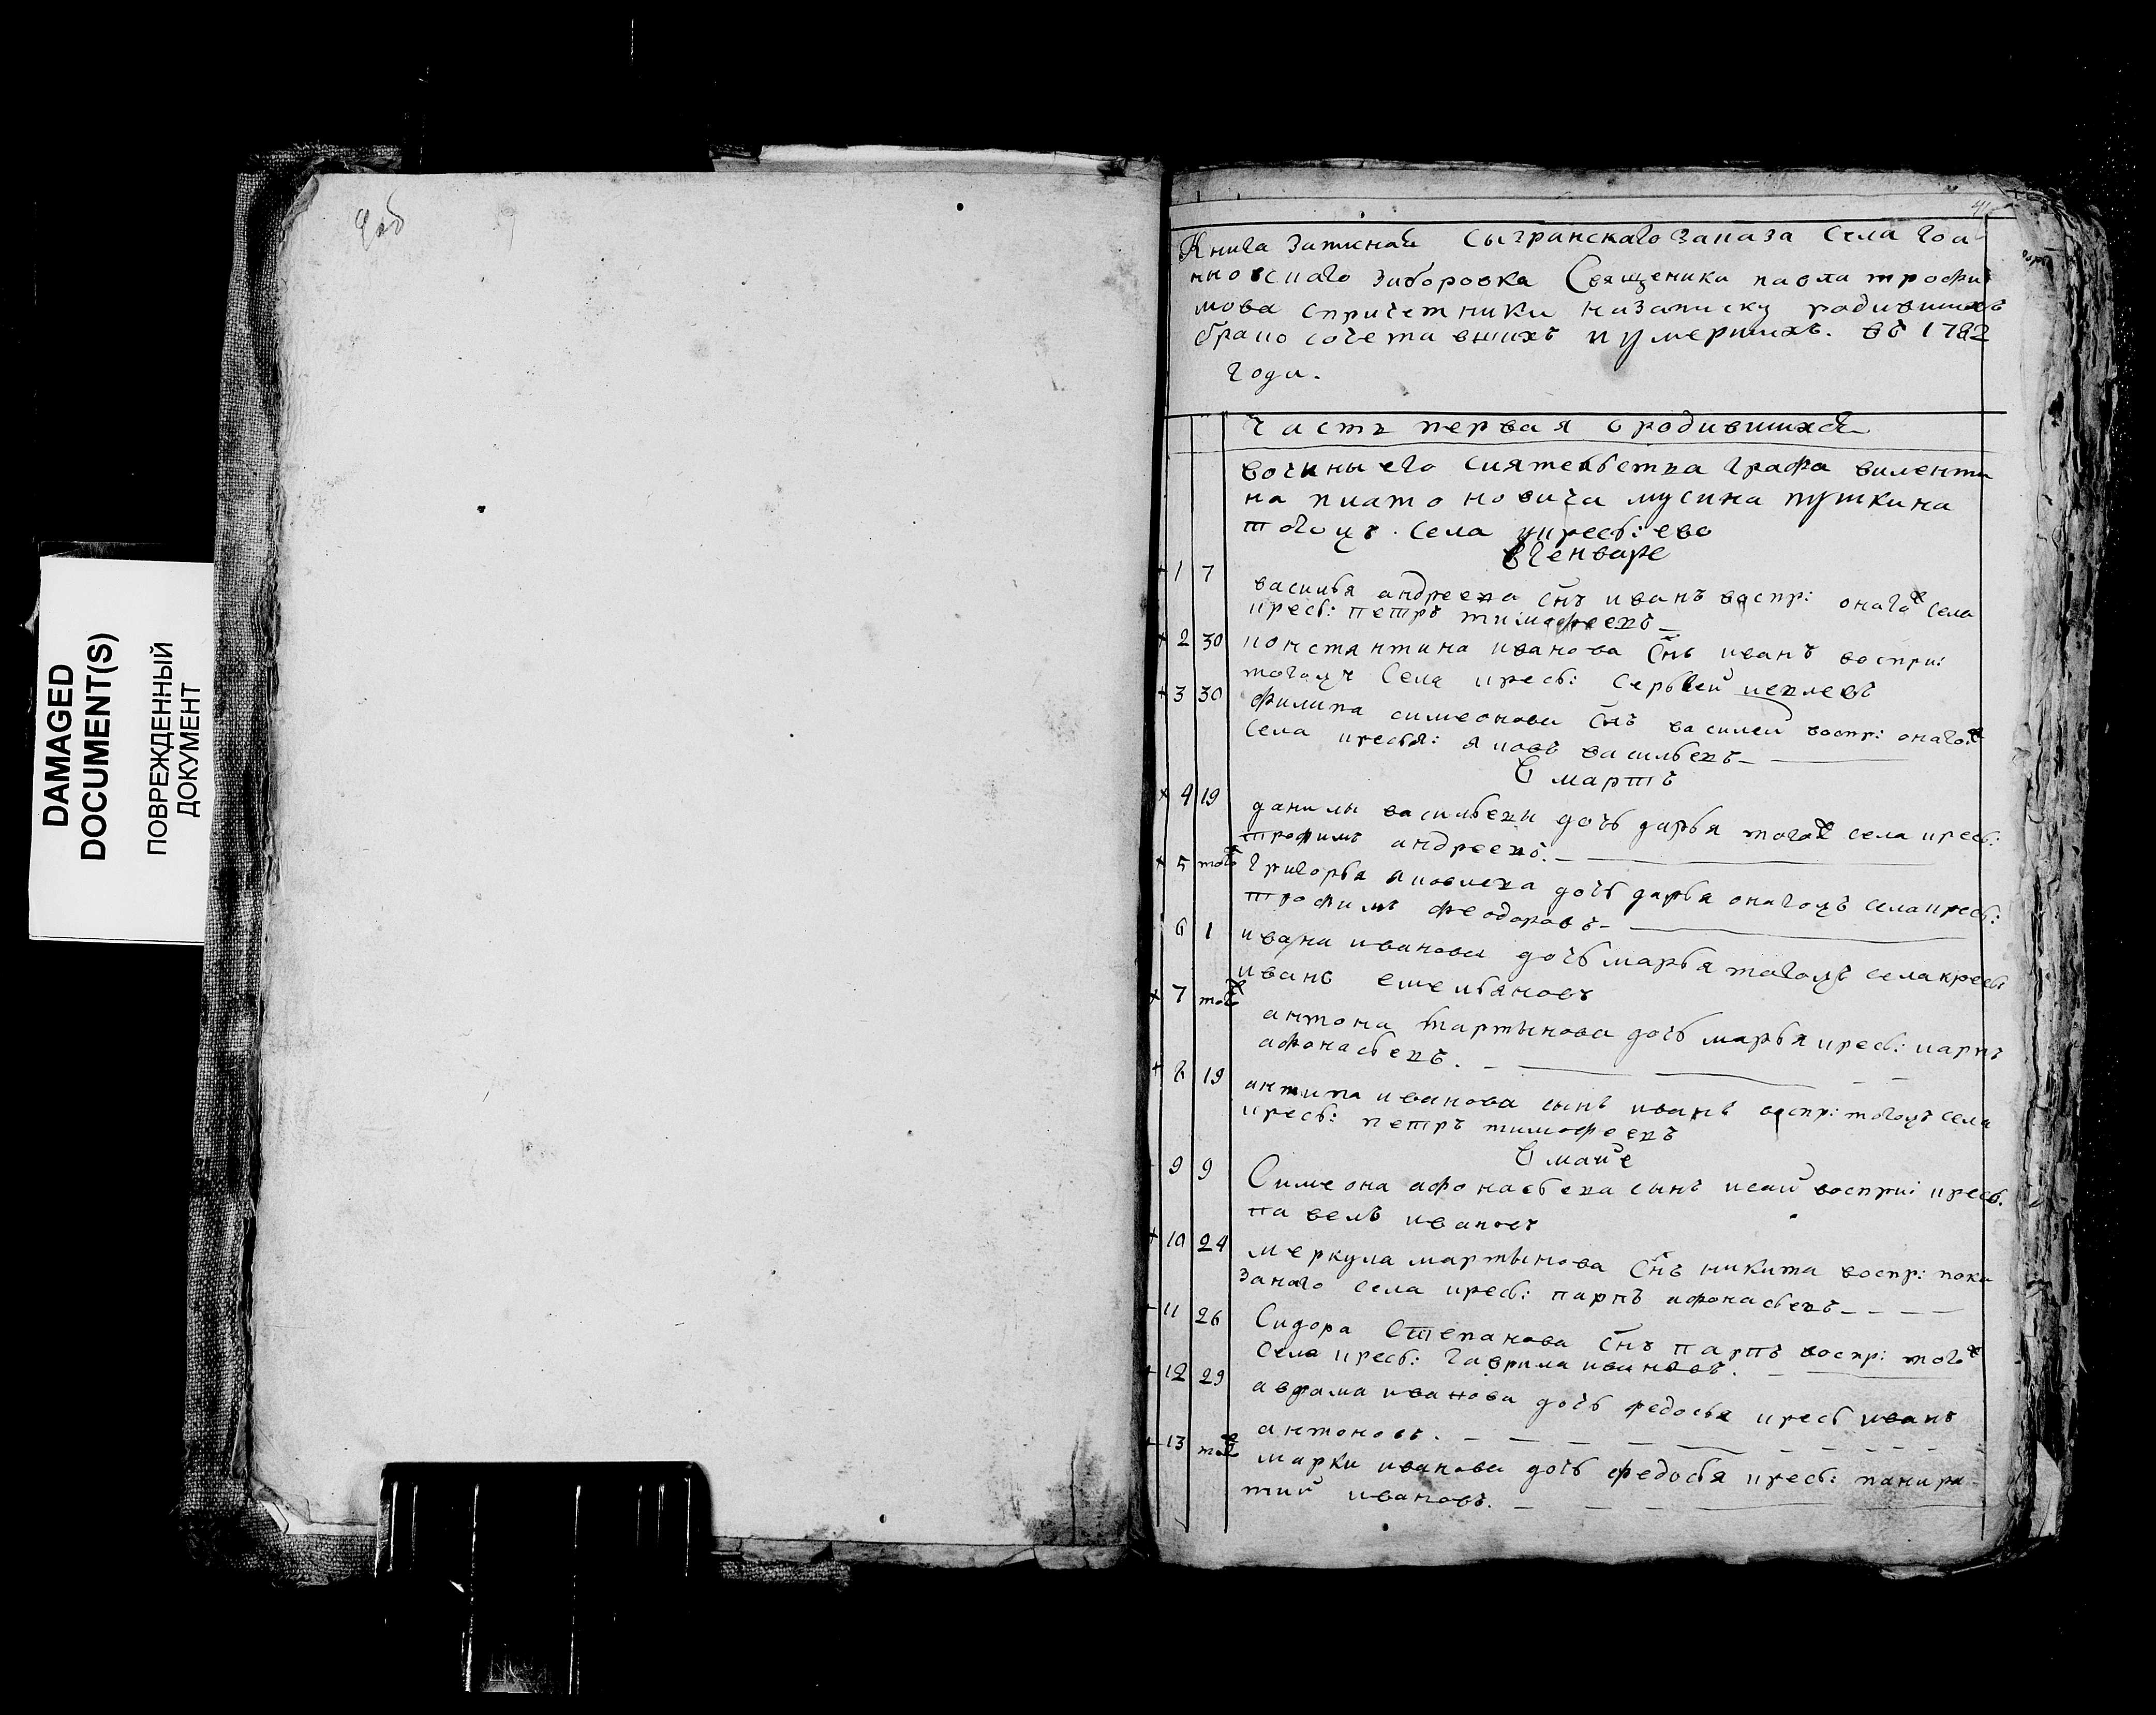 DAMAGED
DOCUMENT(S)
ПОВРЕЖДЕННЫЙ
ДОКУМЕНТ
41
Книга записная Сызранскаго заказа села Іоа
нновскаго Зиборовка Священика павла трофи
мова спричетники назаписку родившихъ
брако сочетавшихъ и умершихъ. въ 1782
года.
Часть первая о родившихся
вочины его сиятельства графа валенти
на платоновича мусина пушкина
тогожъ села кресь: ево
в генваре
1 7 василья андреева снъ иванъ воспр: онагож села
кресь: петръ тимофеевъ
2 30 константина иванова снъ иванъ воспри:
тогожъ села кресь: Сергей
3 30 филипа симеонова снъ василей воспр: онагож
села кресья: яковъ васильевъ
В мартъ
4 19 данилы васильева дочь дарья тогож села кресь:
трофимъ андреевъ.
5 тогож григорья яковлева дочь дарья онагожъ села кресь:
трофимъ феодоровъ
6 1 ивана иванова дочь марья тогожъ села кресь
иванъ емельяновъ
7 тогож антона мартынова дочь марья кресь: карпъ
афонасьевъ.
8 19 антипа иванова сынъ иванъ воспр: тогожъ села
кресь: петръ тимофеевъ
В маие
9 9 Симеона афонасьева сынъ исай воспри: кресь.
павелъ ивановъ
10 24 меркула мартынова снъ никита воспр: пока
занаго села кресь: карпъ афонасьевъ
11 26 Сидора Степанова снъ карпъ воспр: тогож
села кресь: гаврила ивановъ.
12 29 аврама иванова дочь федосья кресь иванъ
антоновъ.
13 тогож марки иванова дочь федосья кресь: панкра
тий ивановъ.